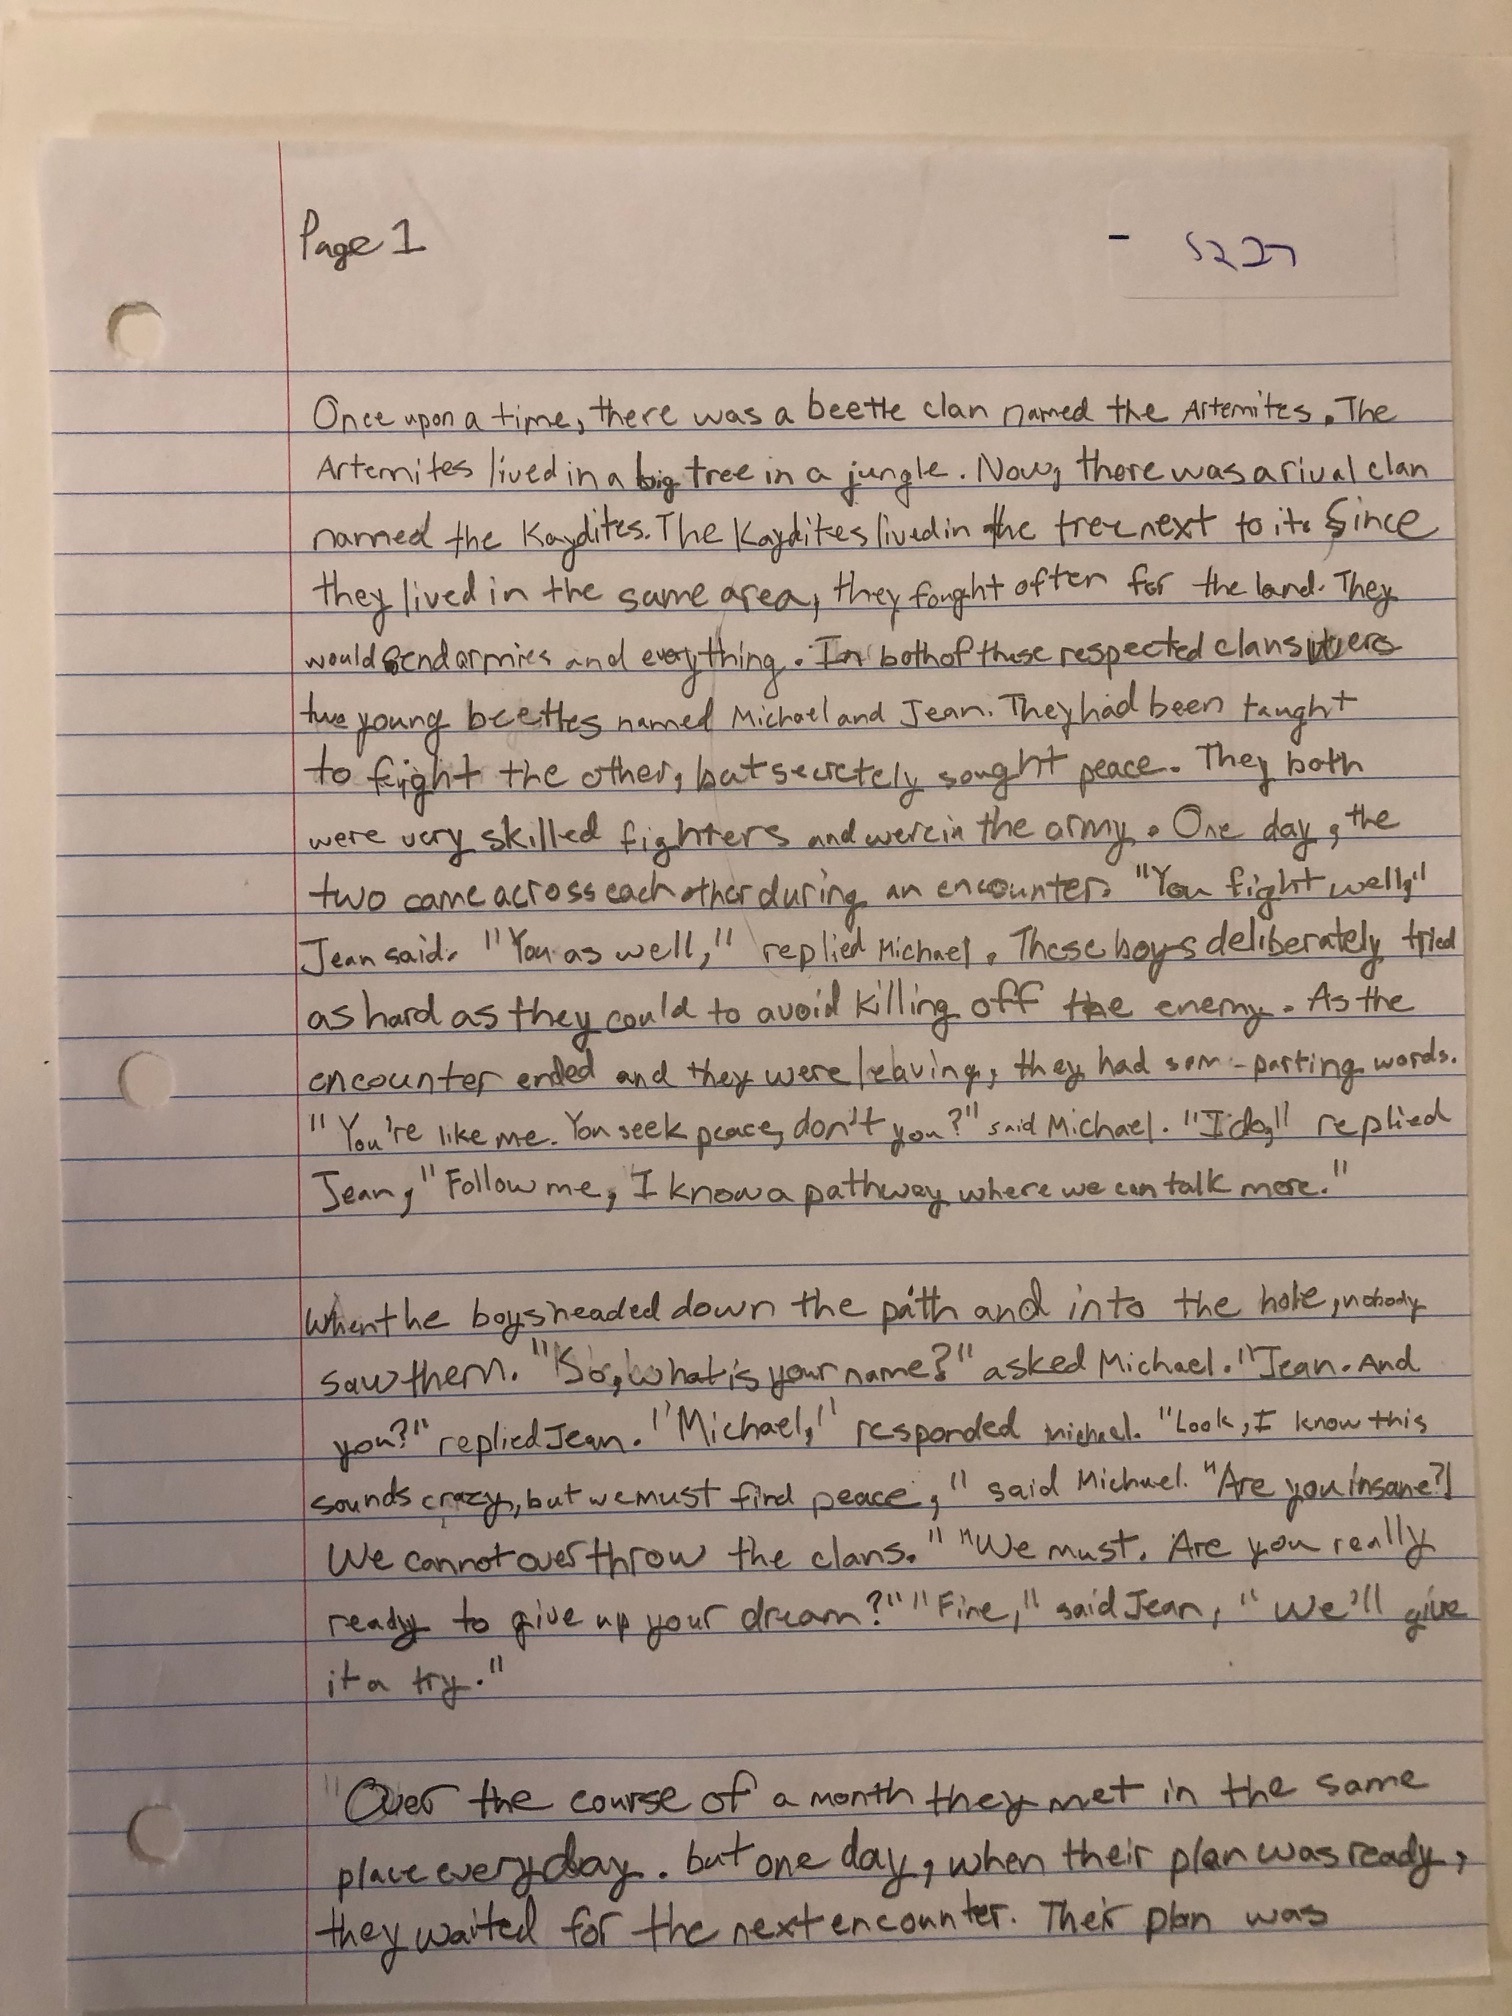 Page 1
- 5227
Once upon a time, there was a beetle clan named the Artemites. The
Artemites lived in a big tree in a jungle. Now, there was a rival clan
named the Kaydites. The Kaydites lived in the tree next to it. Since
they lived in the same area, they fought often for the land. They
would send armies and everything. In both of these respected clans were
two young beetles named Michael and Jean. They had been taught
to feight the other, but secretely sought peace. They both
were very skilled fighters and were in the army. One day, the
two came across each other during an encounter. "You fight well,"
Jean said. "You as well," replied Michael. These boys deliberately tried
as hard as they could to avoid killing off the enemy. As the
encounter ended and they were leaving, they had som- parting words.
"You're like me. You seek peace, don't you?" said Michael. "I do," replied
Jean, "Follow me, I know a pathway where we can talk more."
When the boys headed down the path and into the hole, nobody
saw them. "So, what is your name?" asked Michael. "Jean. And
you?" replied Jean. "Michael," responded michael. "Look, I know this
sounds crazy, but we must find peace," said Michael. "Are you insane?!
We cannot overthrow the clans." "We must. Are you really
ready to give up your dream?" "Fine," said Jean, "We'll give
it a try."
"Over the course of a month they met in the same
place everyday. but one day, when their plan was ready,
they waited for the next encounter. Their plan was